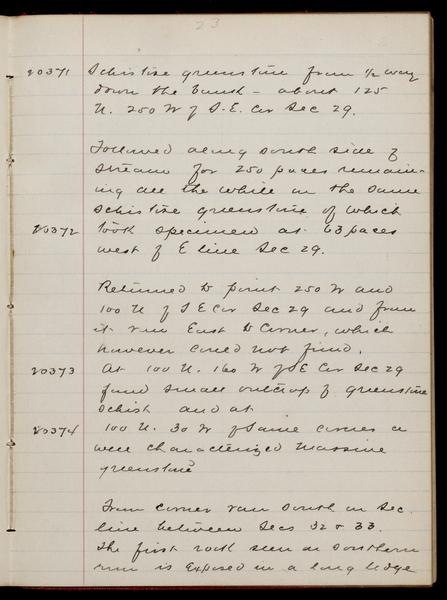 23
20371 Schistose greenstone from 1/2 way
down the bank - about 125
N. 250 W of S.E. Cor Sec 29.
Followed along south side of
stream for 250 paces remain-
ing all the while in the same
schistose greenstone of which
20372 took specimen at 63 paces
west of E line Sec 29.
Returned to point 250 W and
100 N of S E Cor Sec 29 and from
it run East to Corner, which
however could not find.
20373 At 100 N. 160 W of SE Cor Sec 29
found small outcrop of greenstone
schist and at
20374 100 N. 30 W of same corner a
well characterized massive
greenstone
From corner ran south on Sec.
line between Secs 32 & 33.
The first rock seen on southern
run is exposed in a long ledge